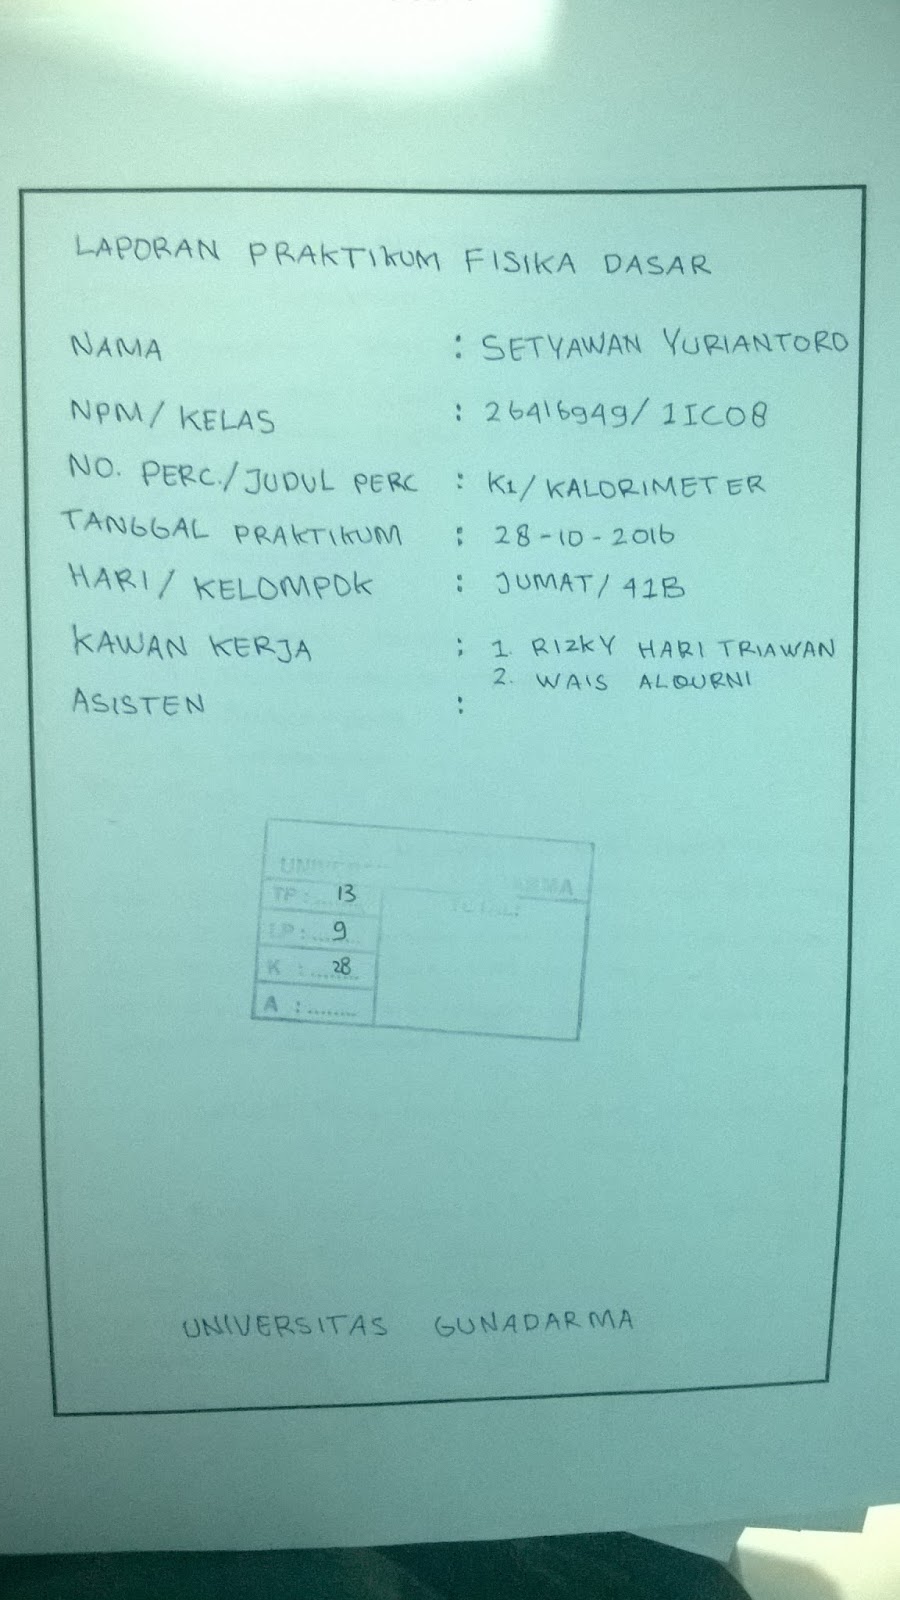 LAPORAN PRAKTIKUM FISIKA DASAR
NAMA : SETYAWAN YURIANTORO
NPM/ KELAS : 26416949/ 1IC08
NO. PERC./JUDUL PERC : K1/ KALORIMETER
TANGGAL PRAKTIKUM : 28-10-2016
HARI/ KELOMPOK : JUMAT/ 41B
KAWAN KERJA : 1. RIZKY HARI TRIAWAN
2. WAIS ALQURNI
ASISTEN :
TP : 13
TOTAL:
LP : 9
K : 28
A : ........
UNIVERSITAS GUNADARMA